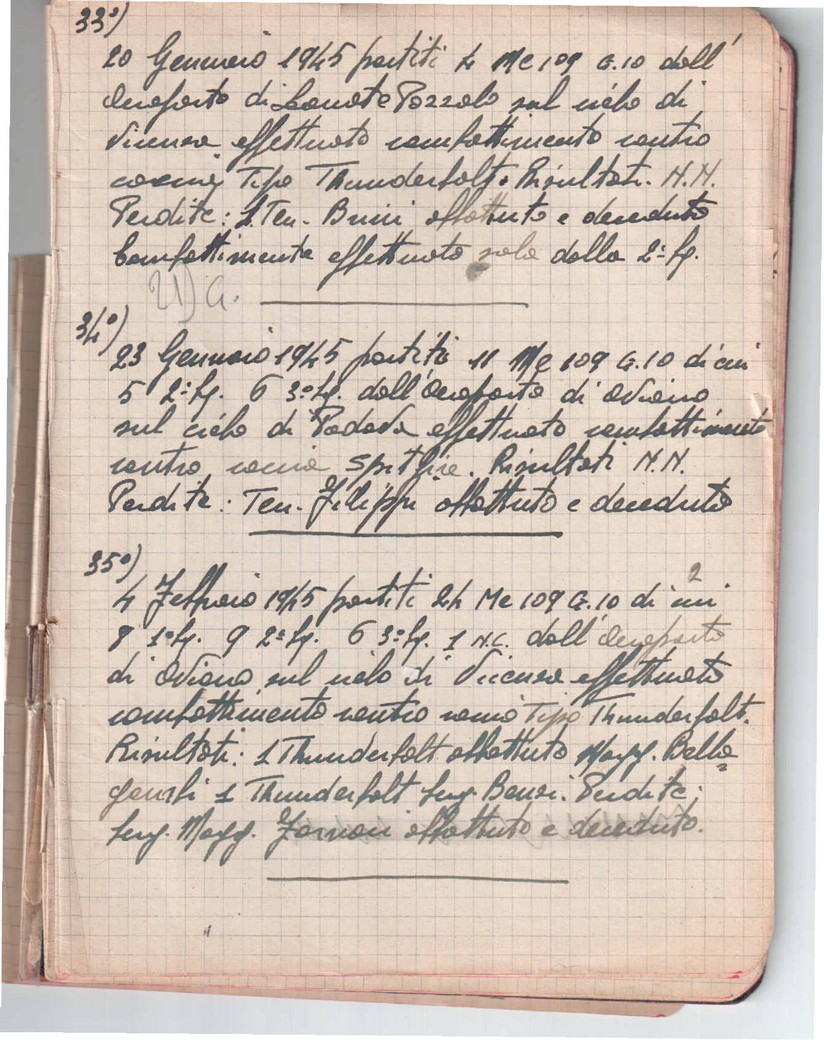 33°)
20 Gennaio 1945 partiti 4 Me 109 G.10 dall'
Aeroporto di Lonate Pozzolo sul cielo di
Vicenza effettuato combattimento contro
caccia Tipo Thunderbolt. Risultati. N.N.
Perdite: 1 Ten. Brini abbattuto e deceduto
Combattimento effettuato solo dalla 2ª Sq.
21) G.
34°)
23 Gennaio 1945 partiti 11 Me 109 G.10 di cui
5 2ª Sq. 6 3ª Sq. dall'Aeroporto di Aviano
sul cielo di Padova effettuato combattimento
contro caccia Spitfire. Risultati N.N.
Perdite: Ten. Filippi abbattuto e deceduto
35°)
2
4 Febbraio 1945 partiti 24 Me 109 G.10 di cui
8 1ª Sq. 9 2ª Sq. 6 3ª Sq. 1 N.C. dall'Aeroporto
di Aviano sul cielo di Vicenza effettuato
combattimento contro caccia Tipo Thunderbolt.
Risultati: 1 Thunderbolt abbattuto Magg. Bella=
gambi 1 Thunderbolt Serg. Benzi. Perdite:
Serg. Magg. abbattuto e deceduto.